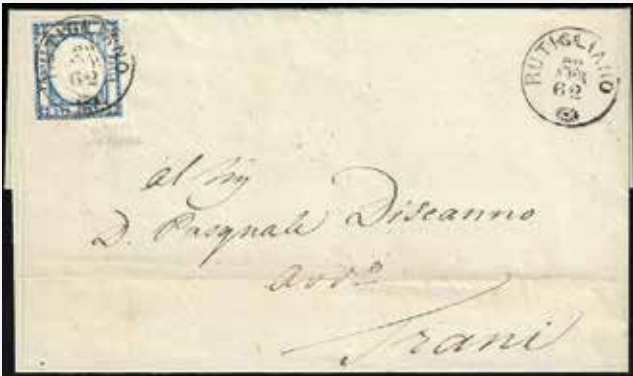 RUTIGLIANO
62
RUTIGLIANO
62
al Sig
D. Pasquale Discanno
Avv.o
Trani